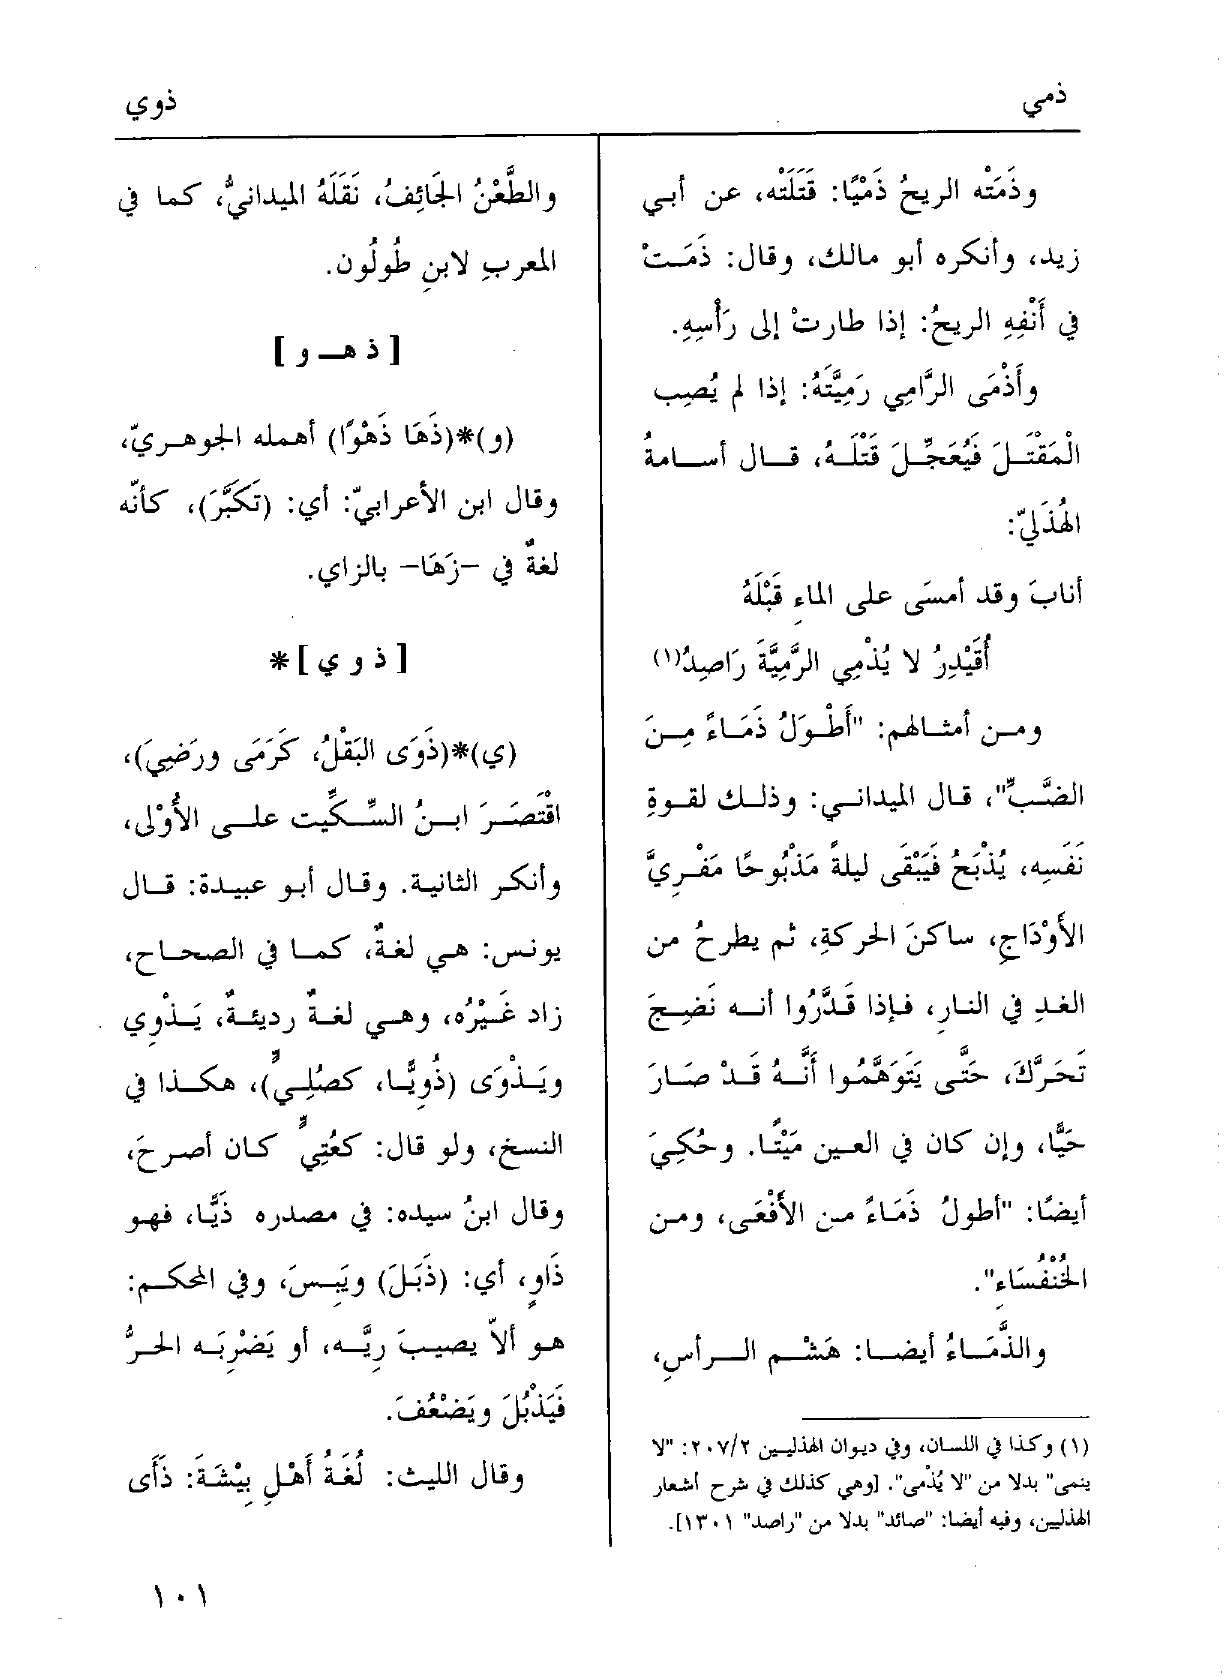 ذمي
ذوي
وذَمَتْه الريحُ ذَمْيًا: قَتَلَتْه، عن أبي
زيد، وأنكره أبو مالك، وقال: ذَمَـتْ
في أَنْفِهِ الريحُ: إذا طارتْ إلى رَأْسِهِ.
وأَذْمَى الرَّامِي رَمِيَّتَهُ: إذا لم يُصِب
الْمَقْتَـلَ فَيُعَجِّـلَ قَتْلَـهُ، قـال أسـامةُ
الهُذَليّ:
أنابَ وقد أمسَى على الماءِ قَبْلَهُ
أُقَيْدِرُ لا يُذْمِي الرَّمِيَّةَ رَاصِدُ(١)
ومـن أمثـالهم: "أَطْـوَلُ ذَمَـاءً مِـنَ
الضَّبِّ"، قال الميداني: وذلـك لقـوةِ
نَفَسِه، يُذْبَحُ فَيَبْقَى ليلةً مَذْبُوحًا مَفْرِيَّ
الأوْدَاجِ، ساكنَ الحركةِ، ثم يطرحُ من
الغدِ في النارِ، فـإذا قَدَّرُوا أنـه نَضِـجَ
تَحَرَّكَ، حَتَّى يَتَوَهَّمُوا أَنَّـهُ قَـدْ صَـارَ
حَيًّا، وإن كان في العـين مَيْتًـا. وحُكِـيَ
أيضًا: "أطولُ ذَمَاءً مـن الأَفْعَى، ومـن
الخُنْفُسَاءِ".
والذَّمَـاءُ أيضـا: هَشْـم الـرأسِ،
(١) وكذا في اللسان، وفي ديوان الهذليين ٢٠٧/٢: "لا
ينمى" بدلا من "لا يُذْمى". [وهي كذلك في شرح أشعار
الهذليين، وفيه أيضا: "صائد" بدلا من "راصد" ١٣٠١].
والطَّعْنُ الجَائِفُ، نَقَلَهُ الميدانيُّ، كما في
المعربِ لابنِ طُولُون.
[ ذ هـ و ]
(و)*(ذَهَا ذَهْوًا) أهمله الجوهـريّ،
وقال ابن الأعرابيّ: أي: (تَكَبَّرَ)، كأنّه
لغةٌ في –زَهَا– بالزاي.
[ ذ و ي ]*
(ي)*(ذَوَى البَقْلُ، كَرَمَى ورَضِيَ)،
اقْتَصَـرَ ابـنُ السِّـكِّيت علـى الأُوْلى،
وأنكر الثانية. وقال أبو عبيدة: قـال
يونس: هـي لغةٌ، كمـا في الصحـاح،
زاد غَيْرُه، وهـي لغـةٌ رديئـةٌ، يَـذْوِي
ويَـذْوَى (ذُوِيًّـا، كصُلِـيٍّ)، هكـذا في
النسخ، ولو قال: كعُتِيٍّ كـان أصرحَ،
وقال ابنُ سيده: في مصدره ذَيًّا، فهو
ذَاوٍ، أي: (ذَبَلَ) ويَبِسَ، وفي المحكـم:
هـو ألاّ يصيبَ رِيَّـه، أو يَضْرِبَـه الحرُّ
فَيَذْبُلَ ويَضْعُفَ.
وقال الليث: لُغَةُ أَهْلِ بِيْشَةَ: ذَأَى
١٠١